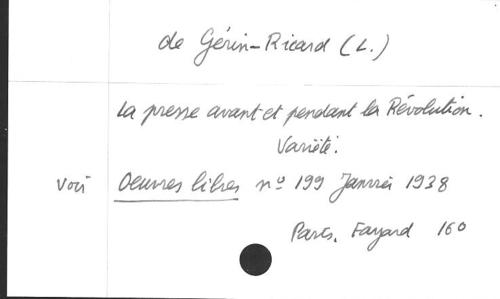 de Gérin-Ricard (L.)
La presse avant et pendant la Révolution.
Variété.
Voir Oeuvres libres nº 199 Janvier 1938
Paris, Fayard 160